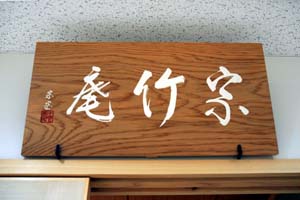 宗竹庵